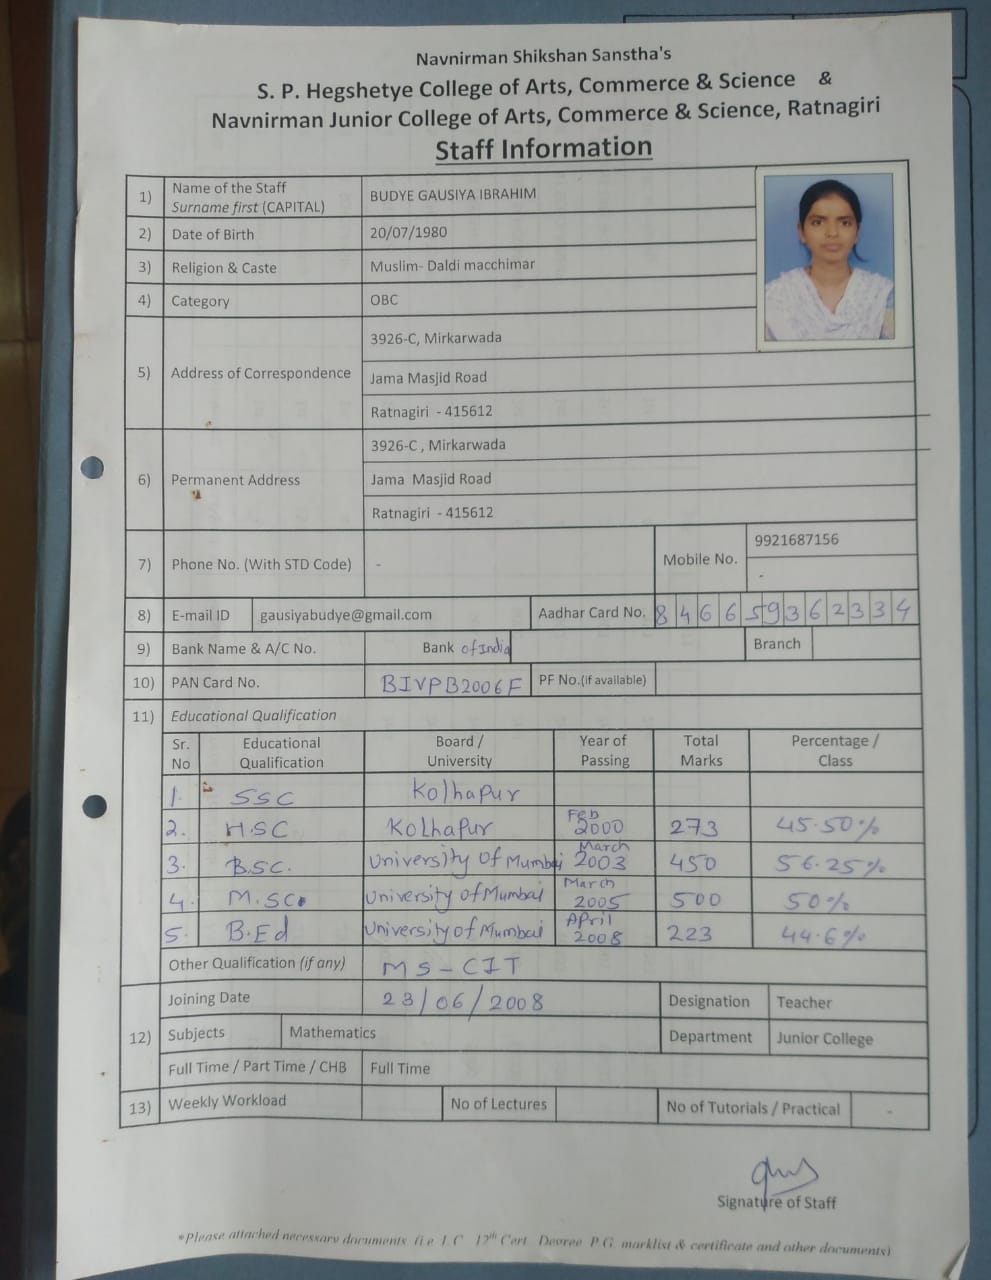 Navnirman Shikshan Sanstha's
S. P. Hegshetye College of Arts, Commerce & Science &
Navnirman Junior College of Arts, Commerce & Science, Ratnagiri
Staff Information
1) Name of the Staff Surname first (CAPITAL) BUDYE GAUSIYA IBRAHIM
2) Date of Birth 20/07/1980
3) Religion & Caste Muslim- Daldi macchimar
4) Category OBC
5) Address of Correspondence 3926-C, Mirkarwada
Jama Masjid Road
Ratnagiri - 415612
6) Permanent Address 3926-C , Mirkarwada
Jama Masjid Road
Ratnagiri - 415612
7) Phone No. (With STD Code) - Mobile No. 9921687156
-
8) E-mail ID gausiyabudye@gmail.com Aadhar Card No. 846659362334
9) Bank Name & A/C No. Bank of India Branch
10) PAN Card No. BIVPB2006F PF No.(if available)
11) Educational Qualification
Sr. No Educational Qualification Board / University Year of Passing Total Marks Percentage / Class
1. SSC Kolhapur
2. H.SC Kolhapur Feb 2000 273 45.50%
3. B.SC. University of Mumbai March 2003 450 56.25%
4. M.SC. University of Mumbai March 2005 500 50%
5. B.Ed University of Mumbai April 2008 223 44.6%
Other Qualification (if any) MS-CIT
Joining Date 23/06/2008 Designation Teacher
12) Subjects Mathematics Department Junior College
Full Time / Part Time / CHB Full Time
13) Weekly Workload No of Lectures No of Tutorials / Practical -
Signature of Staff
*Please attached necessary documents (i.e L.C 12th Cert. Degree P.G. marklist & certificate and other documents)